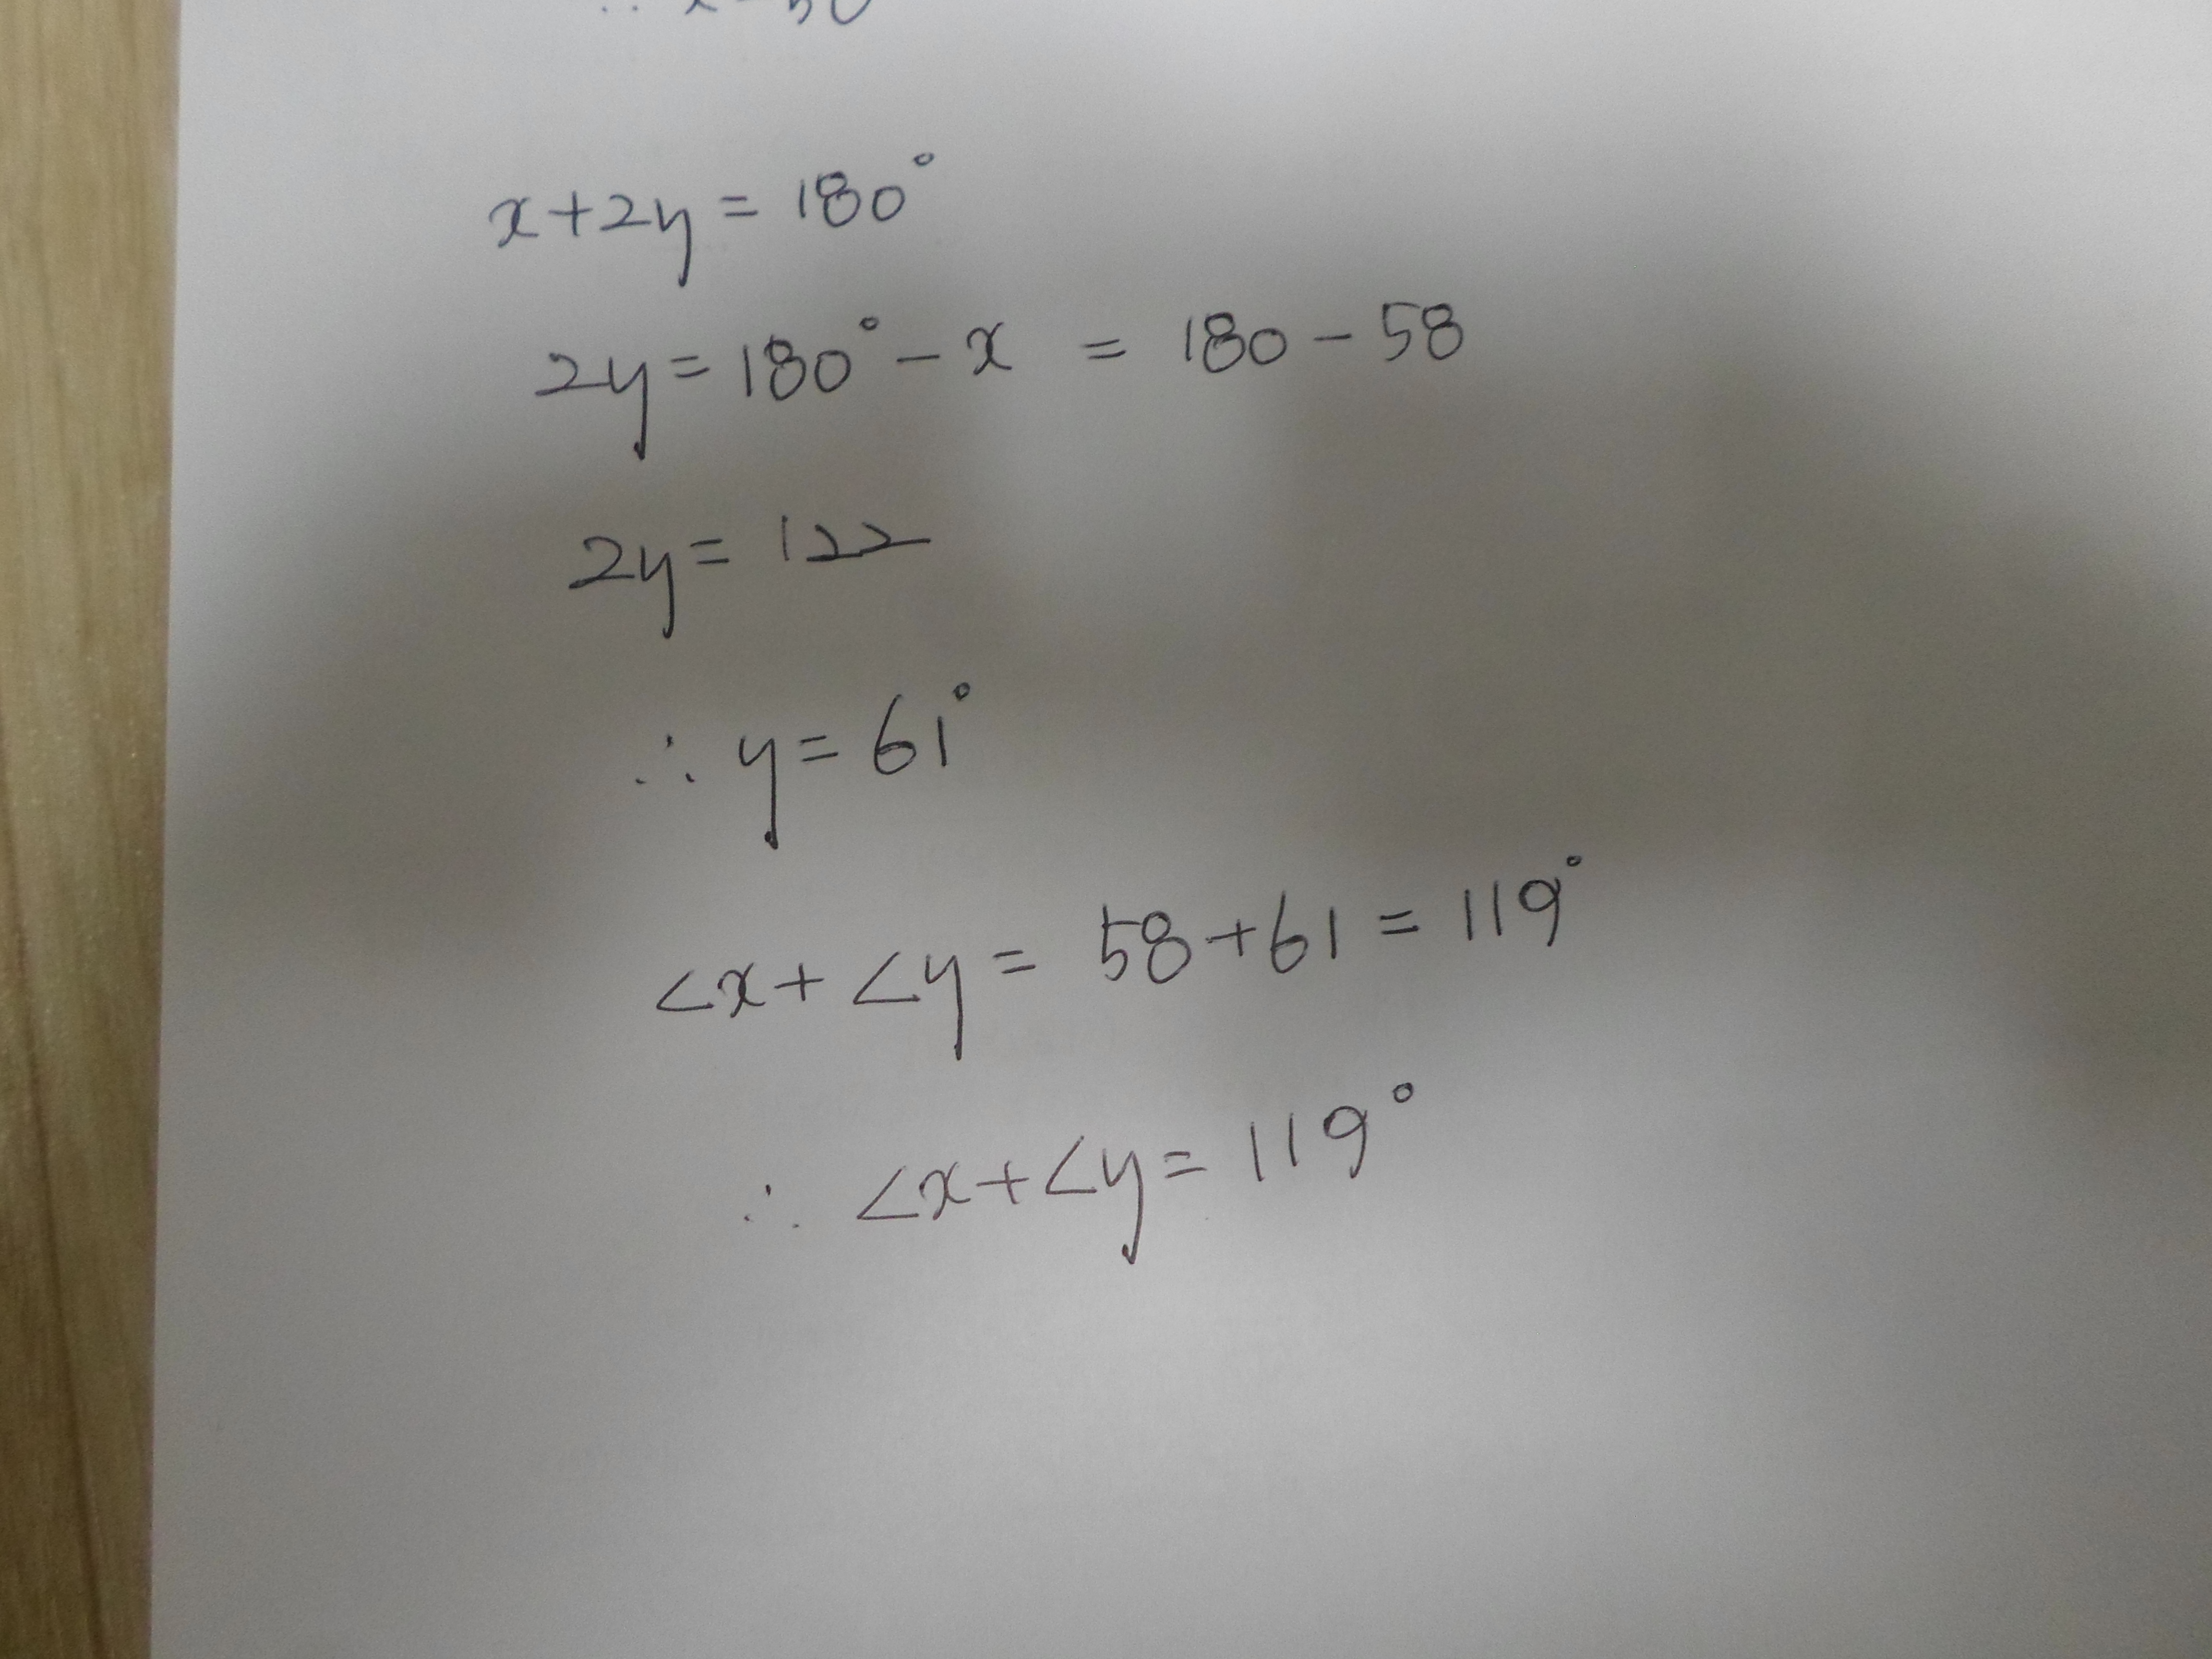 x+2y=180°
2y=180°-x = 180-58
2y=122
∴ y=61°
∠x+∠y=58+61=119°
∴ ∠x+∠y=119°